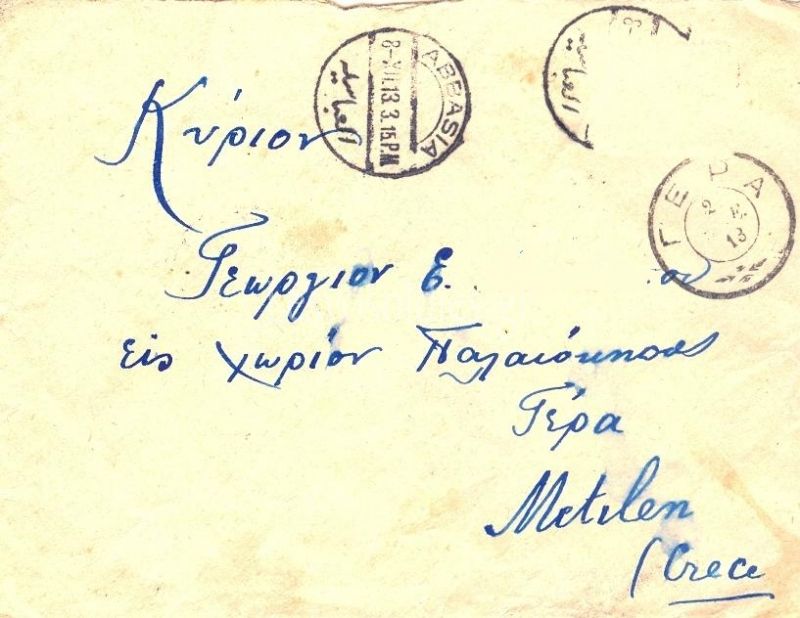 ABBASIA
8-XII.13 3.15 P.M
العباسيه
العباسيه
ΓΕΡΑ
13
Κύριον
Γεωργιον Ε.
εις χωρίον Παλαιόκηπος
Γέρα
Metelen
(Grece